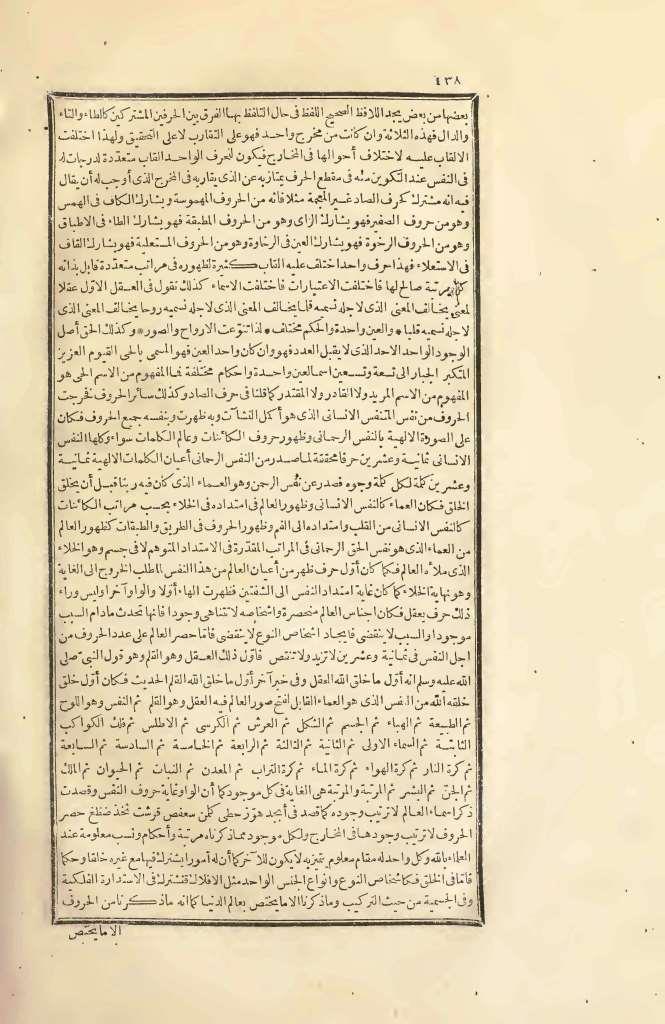 ٤٣٨
بعضها من بعض يجد اللافظ الصحيح اللفظ فى حال التلفظ بها الفرق بين الحرفين المشتركين كالطاء والتاء
والدال فهذه الثلاثة وان كانت من مخرج واحد فهو على التقارب لا على التحقيق ولهذا اختلفت
الالقاب عليه لاختلاف أحوالها فى المخارج فيكون للحرف الواحد القاب متعددة لدرجات له
فى النفس عند التكوين منه فى مقطع الحرف يمتاز به عن الذى يقاربه فى المخرج الذى أوجب له أن يقال
فيه انه مشترك كحرف الصاد غير المعجمة مثلا فانه من الحروف المهموسة ويشارك الكاف فى الهمس
وهو من حروف الصفير فهو يشارك الزاى وهو من الحروف المطبقة فهو يشارك الطاء فى الاطباق
وهو من الحروف الرخوة فهو يشارك العين فى الرخاوة وهو من الحروف المستعلية فهو يشارك القاف
فى الاستعلاء فهذا حرف واحد اختلف عليه القاب كثيرة لظهوره فى مراتب متعددة قابل بذاته
كل مرتبة صالح لها فاختلفت الاعتبارات فاختلفت الاسماء كذلك نقول فى العقل الاول عقلا
لمعنى يخالف المعنى الذى لاجله نسميه قلما يخالف المعنى الذى لاجله نسميه روحا يخالف المعنى الذى
لاجله نسميه قلبا * والعين واحدة والحكم مختلف * لذا تنوعت الارواح والصور * وكذلك الحق أصل
الوجود الواحد الاحد الذى لا يقبل العدد فهو وان كان واحد العين فهو المسمى بالحى القيوم العزيز
المتكبر الجبار الى تسعة وتسعين اسما لعين واحدة وأحكام مختلفة فما المفهوم من الاسم الحى هو
المفهوم من الاسم المريد ولا القادر ولا المقتدر كما قلنا فى حرف الصاد وكذلك سائر الحروف فخرجت
الحروف من نفس المتنفس الانسانى الذى هو أكمل النشآت وبه ظهرت وبنفسه جميع الحروف فكان
على الصورة الالهية بالنفس الرحمانى وظهور حروف الكائنات وعالم الكلمات سواء وكلها النفس
الانسانى ثمانية وعشرين حرفا محققة لما صدر من النفس الرحمانى أعيان الكلمات الالهية ثمانية
وعشرين كلمة لكل كلمة وجوه فصدر عن نفس الرحمن وهو العماء الذى كان فيه ربنا قبل أن يخلق
الخلق فكان العماء كالنفس الانسانى وظهور العالم فى امتداده فى الخلاء بحسب مراتب الكائنات
كالنفس الانسانى من القلب وامتداده الى الفم وظهور الحروف فى الطريق والطبقات كظهور العالم
من العماء الذى هو نفس الحق الرحمانى فى المراتب المقدرة فى الامتداد المتوهم لا فى جسم وهو الخلاء
الذى ملأه العالم فكما كان أول حرف ظهر من أعيان العالم من هذا النفس لما طلب الخروج الى الغاية
وهو نهاية الخلاء كما كان غاية امتداد النفس الى الشفتين فظهرت الهاء أولا والواو آخرا وليس وراء
ذلك حرف يعقل فكان اجناس العالم منحصرة واشخاصه لا تتناهى وجودا فانها تحدث مادام السبب
موجودا والسبب لا ينقضى فايجاد اشخاص النوع لا ينقضى فانما حصر العالم على عدد الحروف من
اجل النفس فى ثمانية وعشرين لا تزيد ولا تنقص فاول ذلك العقل وهو القلم وهو قول النبى صلى
الله عليه وسلم انه أول ما خلق الله العقل وفى خبر آخر أول ما خلق الله القلم الحديث فكان أول خلق
خلقه الله من النفس الذى هو العماء القابل لفتح صور العالم فيه العقل وهو القلم ثم النفس وهو اللوح
ثم الطبيعة ثم الهباء ثم الجسم ثم الشكل ثم العرش ثم الكرسى ثم الاطلس ثم فلك الكواكب
الثابتة ثم السماء الاولى ثم الثانية ثم الثالثة ثم الرابعة ثم الخامسة ثم السادسة ثم السابعة
ثم كرة النار ثم كرة الهواء ثم كرة الماء ثم كرة التراب ثم المعدن ثم النبات ثم الحيوان ثم الملك
ثم الجن ثم البشر ثم المرتبة والمرتبة هى الغاية فى كل موجود كما أن الواو غاية حروف النفس وقصدت
ذكر اسماء العالم لا ترتيب وجوده كما قصد فى أبجد هوز حطى كلمن سعفص قرشت ثخذ ضظغ حصر
الحروف لا ترتيب وجودها فى المخارج ولكل موجود مما ذكرناه مرتبة وأحكام ونسب معلومة عند
العلماء بالله وكل واحد له مقام معلوم يتميز به لا يكون للآخر كما أن له أمورا يشترك فيها مع غيره خلقا وحكما
فاما فى الخلق فكاشخاص النوع وانواع الجنس الواحد مثل الافلاك تشترك فى الاستدارة الفلكية
وفى الجسمية من حيث التركيب وما ذكرنا الا ما يختص بعالم الدنيا كما انه ما ذكرنا من الحروف
الا ما يختص